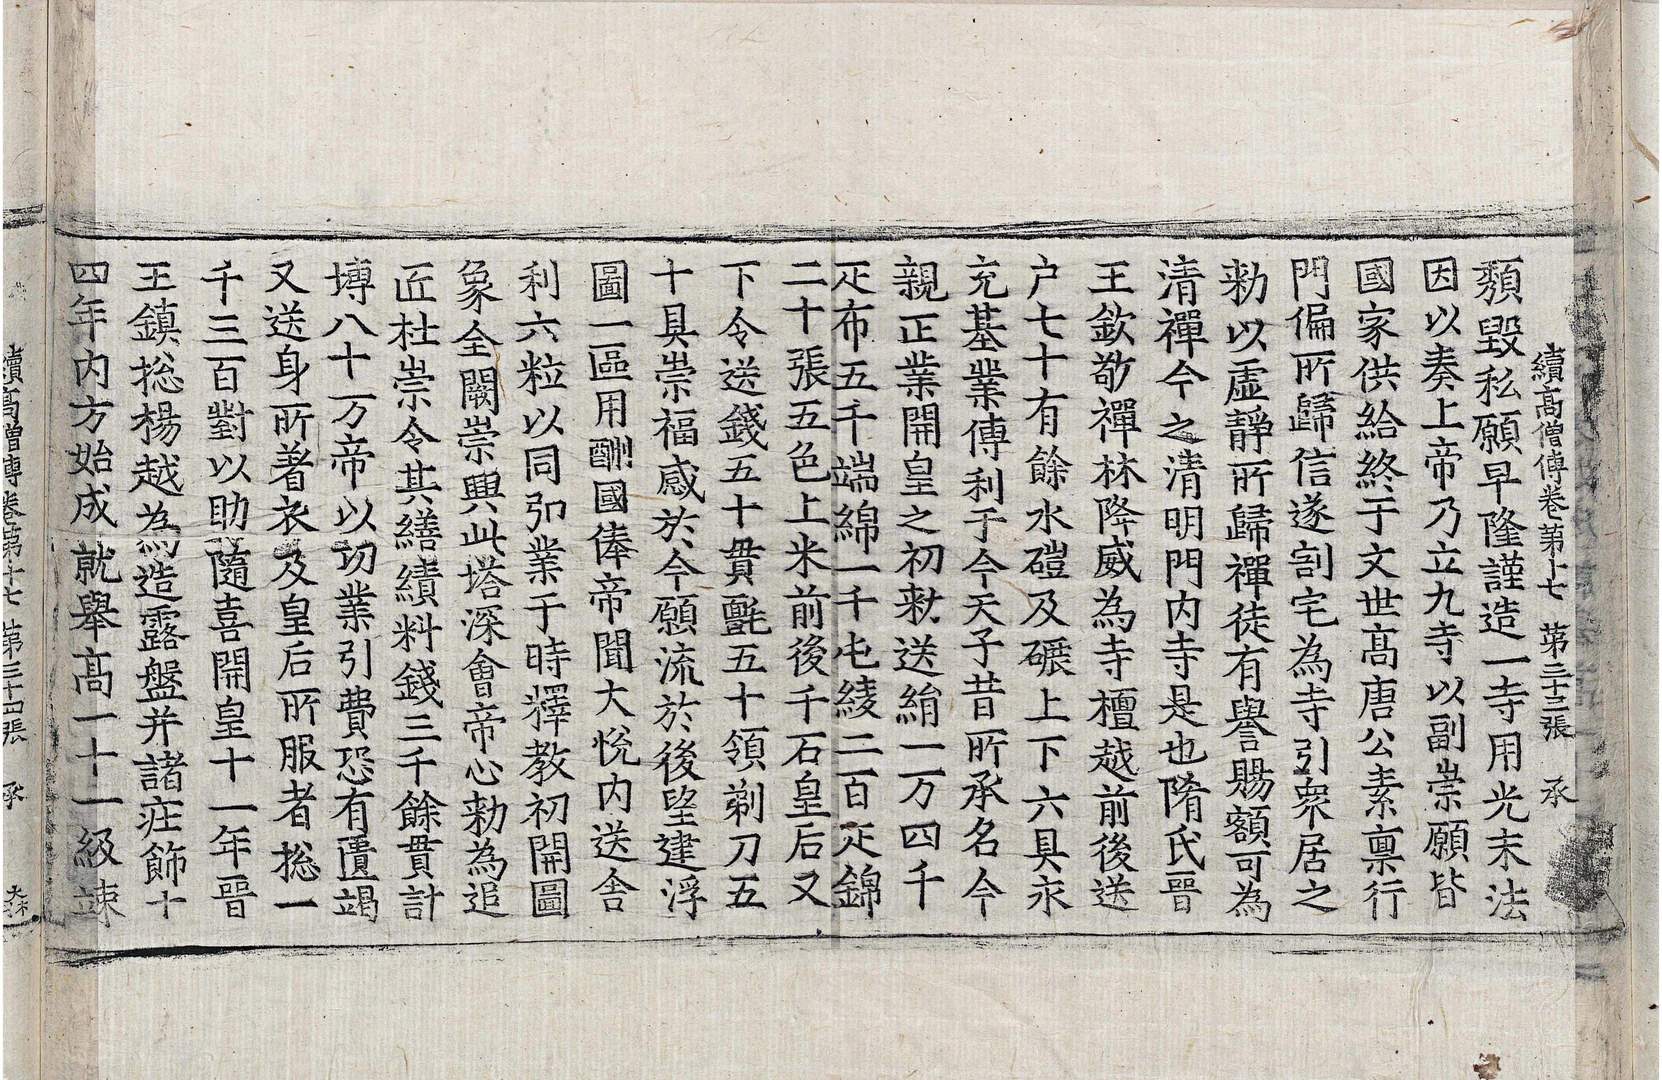 續高僧傳卷第十七 第三十三張 承
頹毀私願早隆謹造一寺用光末法
因以奏上帝乃立九寺以副崇願皆
國家供給終于文世髙唐公素稟行
門偏所歸信遂割宅為寺引衆居之
勑以虛靜所歸禪徒有譽賜額可為
清禪今之清明門内寺是也隋氏晉
王欽敬禪林降威為寺檀越前後送
户七十有餘水磑及碾上下六具永
充基業傳利于今天子昔所承名今
親正業開皇之初勑送絹一万四千
疋布五千端綿一千屯綾二百疋錦
二十張五色上米前後千石皇后又
下令送錢五十貫氈五十領剃刀五
十具崇福感於今願流於後望建浮
圖一區用酬國俸帝聞大悅内送舍
利六粒以同弘業于時釋教初開圖
象全闕崇興此塔深會帝心勑為追
匠杜崇令其繕績料錢三千餘貫計
塼八十万帝以功業引費恐有匱竭
又送身所著衣及皇后所服者捴一
千三百對以助隨喜開皇十一年晉
王鎮捴楊越為造露盤并諸莊飾十
四年内方始成就舉髙一十一級竦
續髙僧傳卷第十七 第三十四張 承